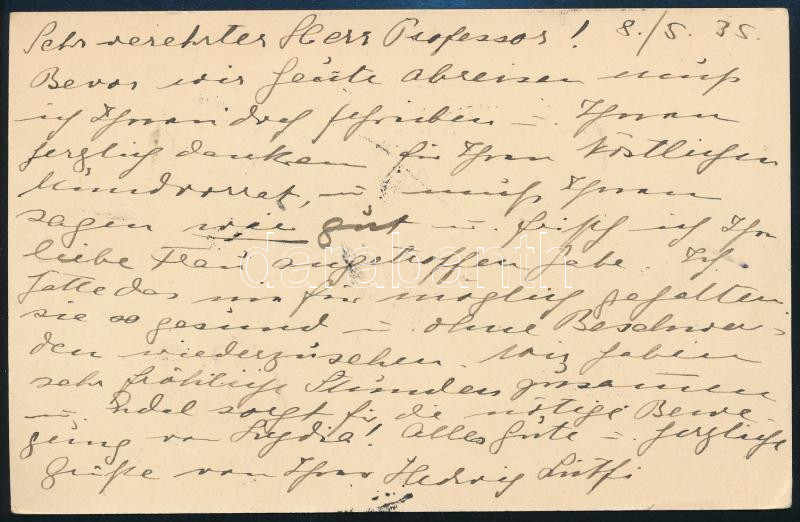 Sehr verehrter Herr Professor! 8./5. 35.
Bevor wir heute abreisen muß
ich Ihnen doch schreiben u. Ihnen
herzlich danken für Ihren köstlichen
Mundvorrat, u. muß Ihnen
sagen wie gut u. frisch ich Ihre
liebe Frau angetroffen habe. Ich
hatte das nie für möglich gehalten
sie so gesund u. ohne Beschwer-
den wiederzusehen. Wir haben
sehr fröhliche Stunden zusammen
u. sorgt für die nötige Bewe
gung von Lydia! Alles Gute u. herzliche
Grüße von Ihrer Hedwig
darabanth